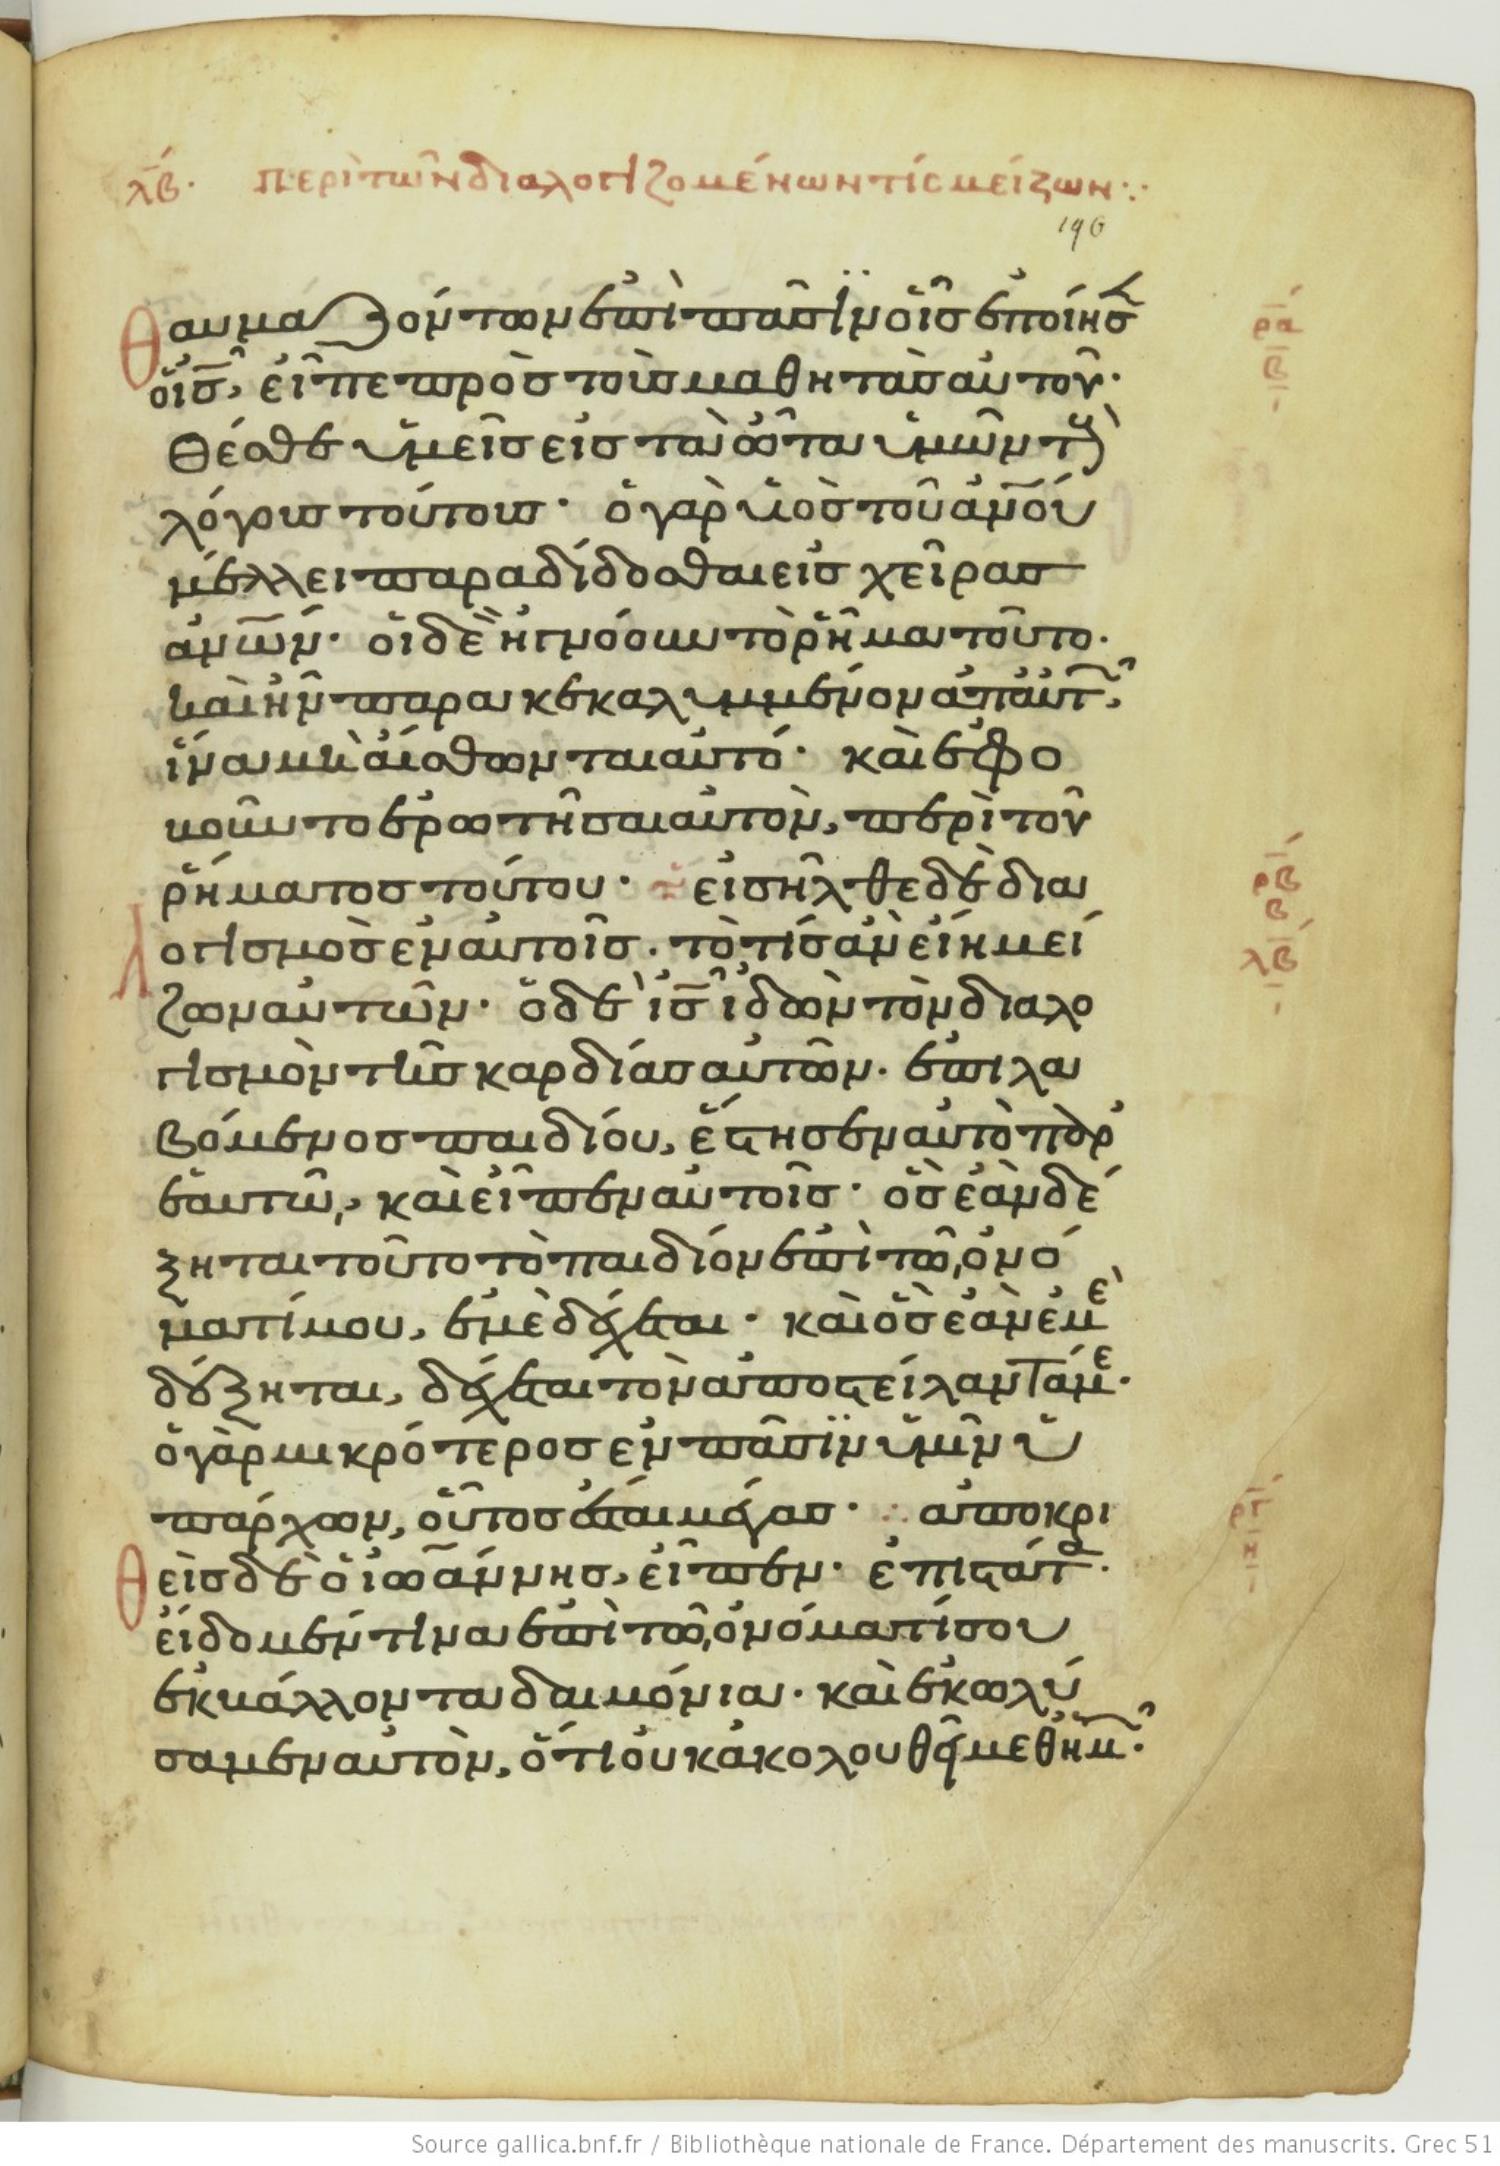 λβ. περὶ τῶν διαλογιζομένων τίς μείζων:·
190
Θαυμαζόντων ἐπὶ πᾶσιν οἷς ἐποίησ
ὁ ἰς, εἶπε πρὸς τοὺς μαθητὰς αὐτοῦ·
θέσθε ὑμεῖς εἰς τὰ ὦτα ὑμῶν τοὺς
λόγους τούτους· ὁ γὰρ υἱὸς τοῦ ἀνου
μέλλει παραδίδοσθαι εἰς χεῖρας
ἀνων· οἱ δὲ ἠγνόουν τὸ ῥῆμα τοῦτο·
καὶ ἦν παρακεκαλυμμένον ἀπ αὐτ,
ἵνα μὴ αἴσθωνται αὐτό· καὶ ἐφο
βοῦντο ἐρωτῆσαι αὐτὸν, περὶ τοῦ
ῥήματος τούτου· εἰσῆλθε δὲ δια
λογισμὸς ἐν αὐτοῖς· τὸ τίς ἂν εἴη μεί
ζων αὐτῶν· ὁ δὲ ἰς ἰδὼν τὸν διαλο
γισμὸν τῆς καρδίας αὐτῶν· ἐπιλα
βόμενος παιδίου, ἔστησεν αὐτὸ παρ
ἑαυτῶ, καὶ εἶπεν αὐτοῖς· ὃς ἐὰν δέ
ξηται τοῦτο τὸ παιδίον ἐπὶ τῶ ὀνό
ματί μου, ἐμὲ δέχεται· καὶ ὃς ἐὰν ἐμὲ
δέξηται, δέχεται τὸν ἀποστείλαντά με·
ὁ γὰρ μικρότερος ἐν πᾶσιν ὑμῖν ὑ
πάρχων, οὗτος ἔσται μέγας· ἀποκρι
θεὶς δὲ ὁ ἰωάννης, εἶπεν· ἐπιστάτα·
εἴδομέν τινα ἐπὶ τῶ ὀνόματί σου
ἐκβάλλοντα δαιμόνια· καὶ ἐκωλύ
σαμεν αὐτὸν, ὅτι οὐκ ἀκολουθεῖ μεθ ἡμ·
ρα
β
ρβ
β
λβ
ργ
η
Source gallica.bnf.fr / Bibliothèque nationale de France. Département des manuscrits. Grec 51